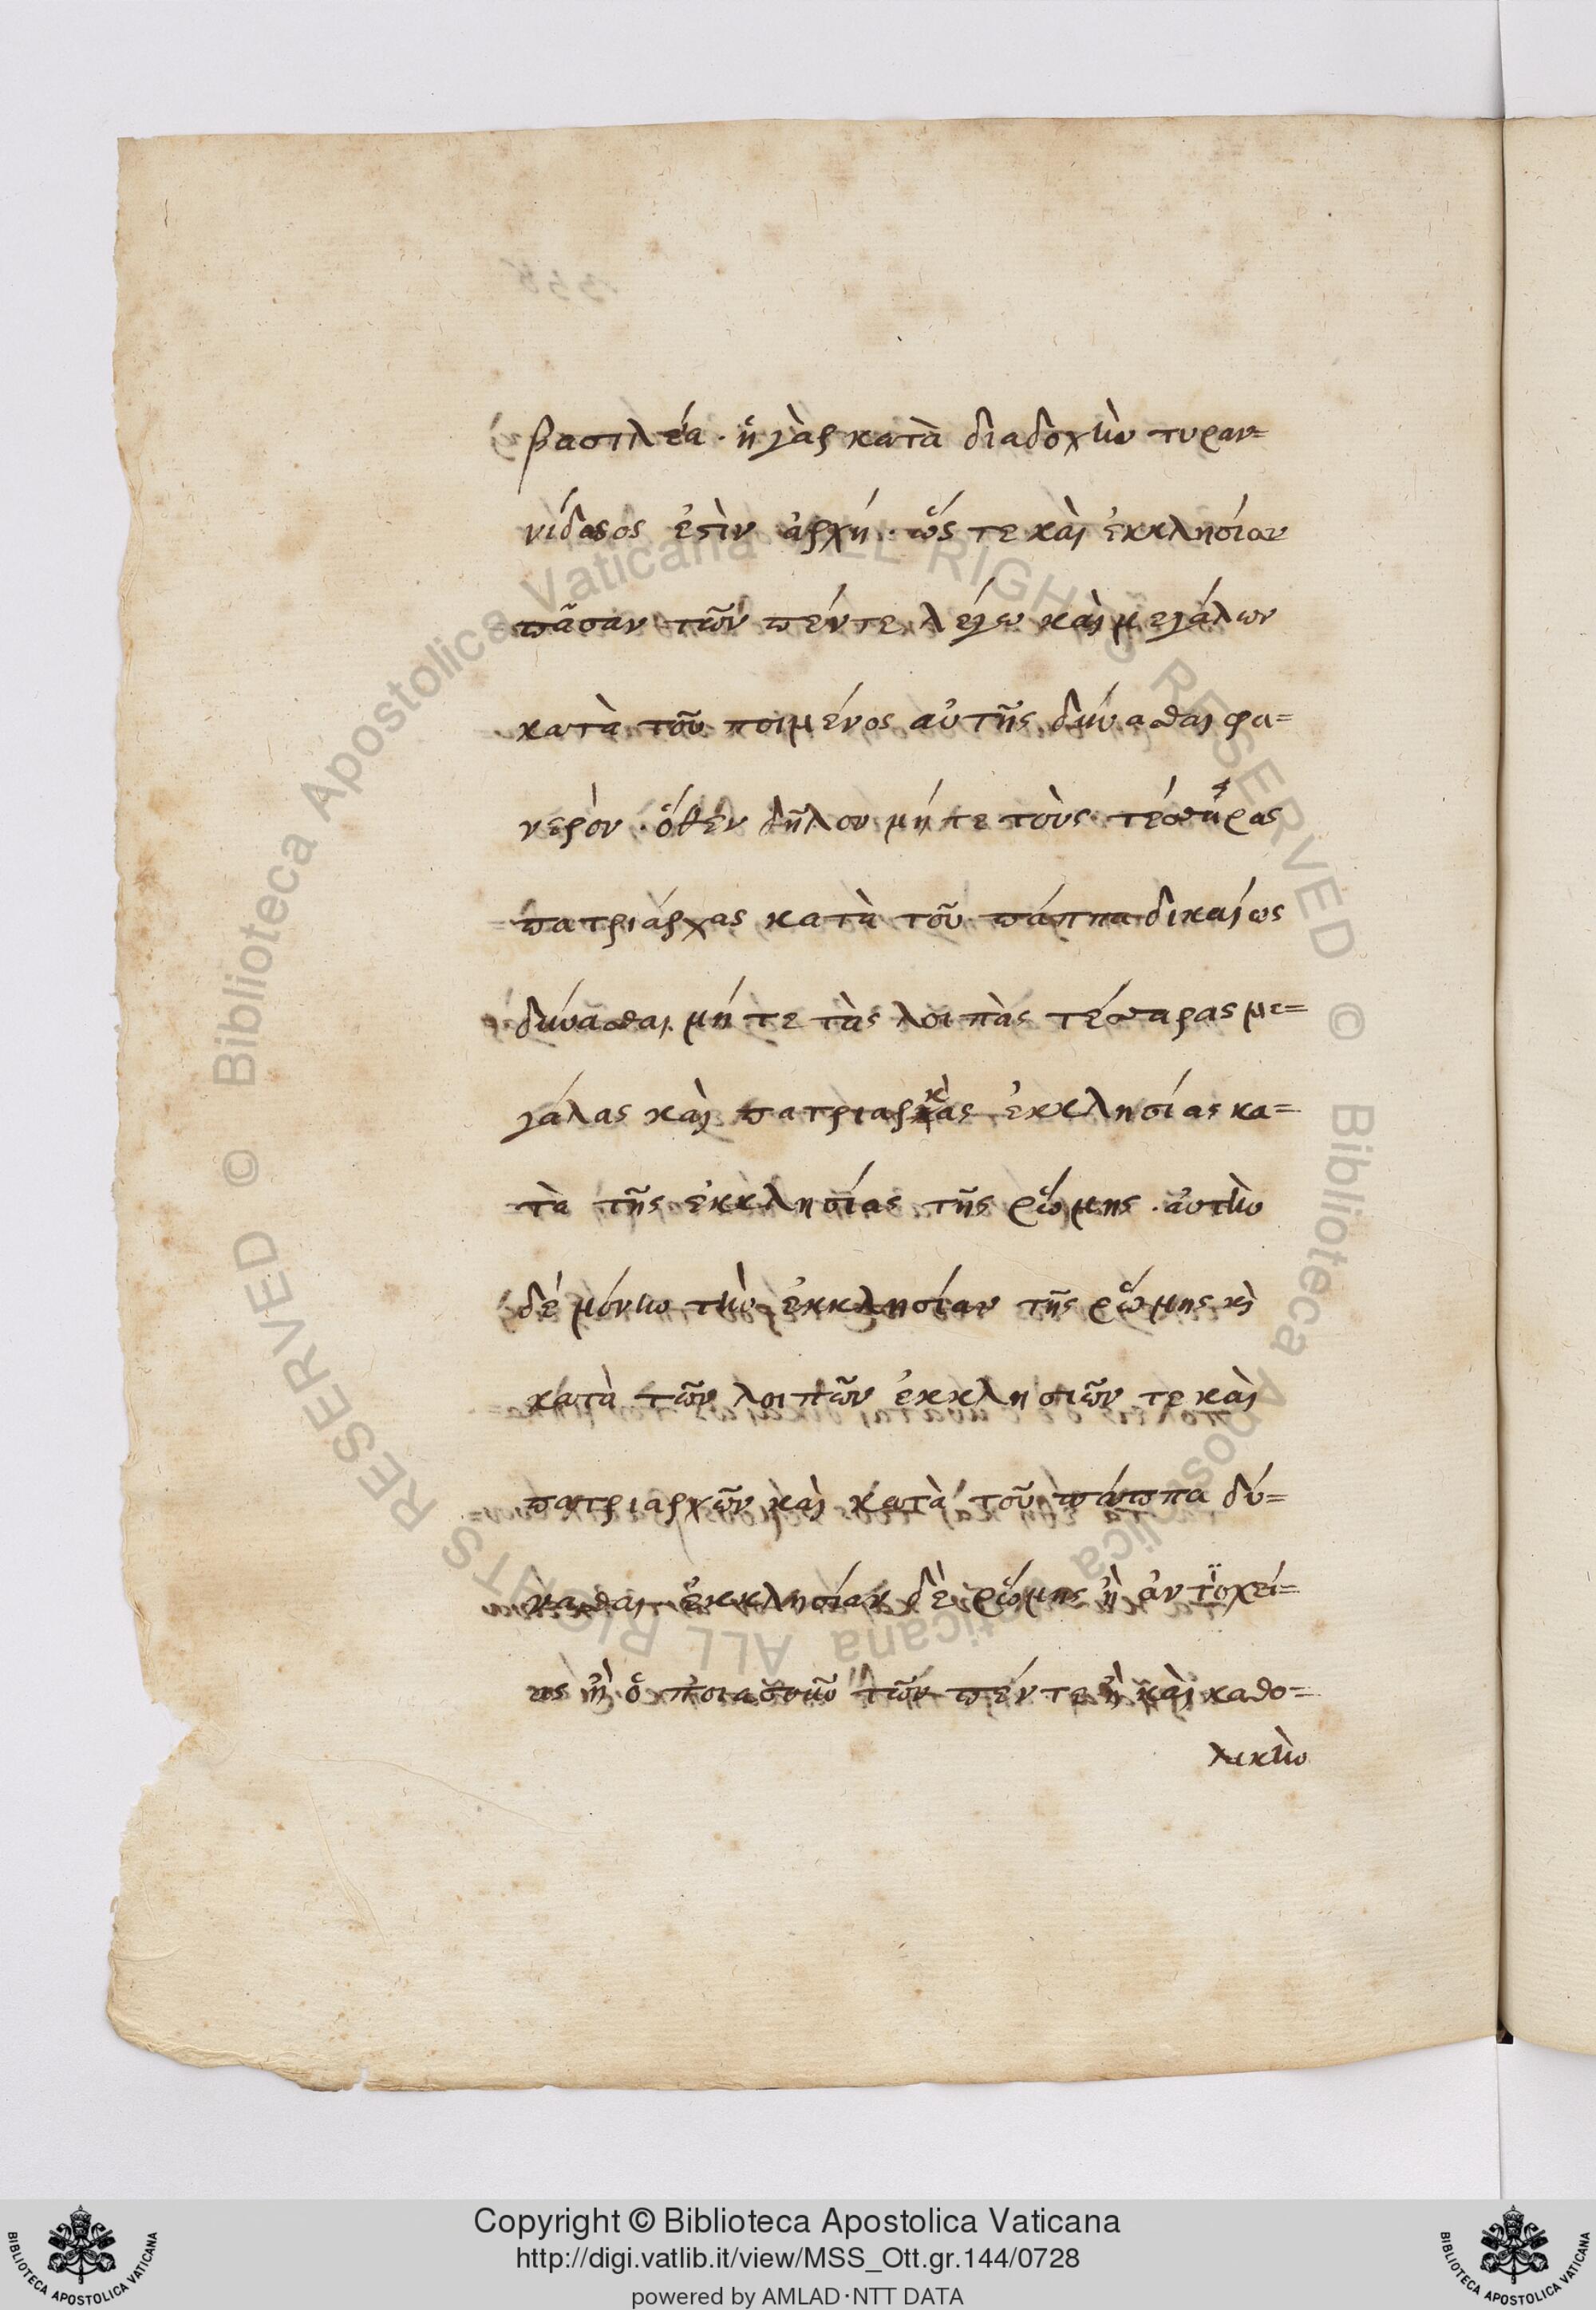 βασιλέα· ἡ γὰρ κατὰ διαδοχὴν τυραν=
νίδος ἐστὶν ἀρχή· ὥς τε καὶ ἐκκλησίαν
πᾶσαν τῶν πέντε λέγω καὶ μεγάλων
κατὰ τοῦ ποιμένος αὐτῆς δύνασθαι φα=
νερόν· ὅθεν δῆλον μήτε τοὺς τέσσαρας
πατριάρχας κατὰ τοῦ πάππα δικαίως
δύνασθαι. μήτε τὰς λοιπὰς τέσσαρας με=
γάλας καὶ πατριαρχικὰς ἐκκλησίας κα=
τὰ τῆς ἐκκλησίας τῆς ῥώμης· αὐτὴν
δέ μόνην τὴν ἐκκλησίαν τῆς ῥώμης καὶ
κατὰ τῶν λοιπῶν ἐκκλησιῶν τε καὶ
πατριαρχῶν καὶ κατὰ τοῦ πάππα δύ=
νασθαι ἐκκλησίαν δὲ ῥώμης ἢ ἀντϊοχεί=
ας ἢ ὁποιασοῦν τῶν πέντε ἢ καὶ καθο=
λικὴν
© Biblioteca Apostolica Vaticana ALL RIGHTS RESERVED © Biblioteca Apostolica Vaticana ALL RIGHTS RESERVED
Copyright © Biblioteca Apostolica Vaticana
http://digi.vatlib.it/view/MSS_Ott.gr.144/0728
powered by AMLAD·NTT DATA
BIBLIOTECA APOSTOLICA VATICANA
BIBLIOTECA APOSTOLICA VATICANA